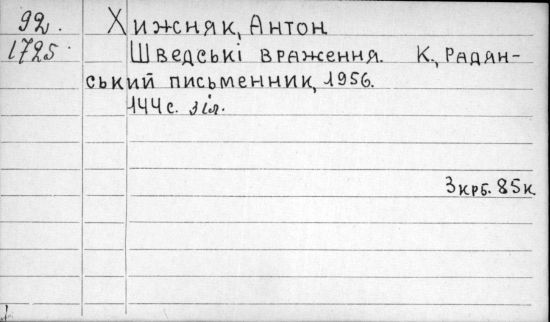 92. Хижняк, Антон
1725 Шведські враження. К., Радян-
ський письменник, 1956.
144с. з іл.
3 крб. 85к.